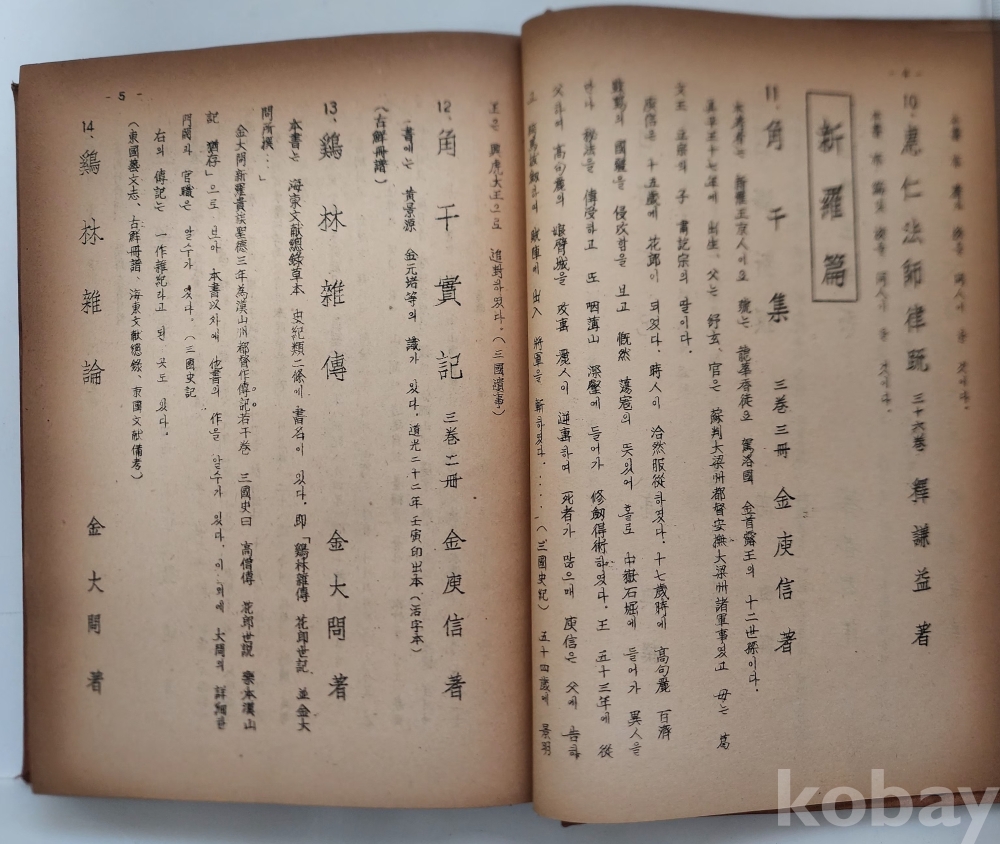 - 4 -
10、惠仁法師律疏 三十六巻 釋謙益 著
新羅篇
11、角干集 三巻三冊 金庾信 著
本著者는 新羅王京人이오 號는 龍華香徒요 駕洛國 金首露王의 十二世孫이다.
眞平王十七年에 出生、父는 舒玄、官은 蘇判大梁州都督安撫大梁州諸軍事였고 母는 葛
文王 立宗의 子 肅訖宗의 딸이다.
庾信은 十五歲에 花郞이 되였다. 時人이 洽然服從하였다. 十七歲時에 高句麗 百濟
靺鞨의 國疆을 侵攻함을 보고 慨然 蕩寇의 뜻있어 홀로 中嶽石堀에 들어가 異人을
만나 秘法을 傳受하고 또 咽薄山 深壑에 들어가 修劒得術하였다. 王 五十三年에 從
父와 高句麗의 娘臂城을 攻擊 麗人이 逆擊하여 死者가 많으매 庾信은 父에 告하
出入 將軍을 斬하였다.‥‥‥(三國史記) 五十四歲에 景明
王은 興虎大王으로 追封하였다.(三國遺事)
12、角干實記 三巻二冊 金庾信 著
書에는 黃景源 金元塔等의 識가 있다. 道光二十二年 壬寅印出本(活字本)
(古鮮冊譜)
13、鷄林雜傳 金大問 著
本書는 海東文献總錄草本 史紀類二條에 書名이 있다. 即「鷄林雜傳 花郞世記 並金大
問所撰‥」
金大問新羅貴族聖德三年為漢山州都督作傳記若干巻 三國史曰 高僧傳 花郞世説 樂本漢山
記 猶存」으로 보아 本書以外에 他書의 作을 알수가 있다. 이 外에 大問의 詳細한
官職은 알수가 없다.(三國史記
右의 傳記는 一作雜紀라고 된 곳도 있다.
(東國藝文志、古鮮冊譜 海東文献總錄、東國文献備考)
14、鷄林雜論 金大問 著
- 5 -
kobay